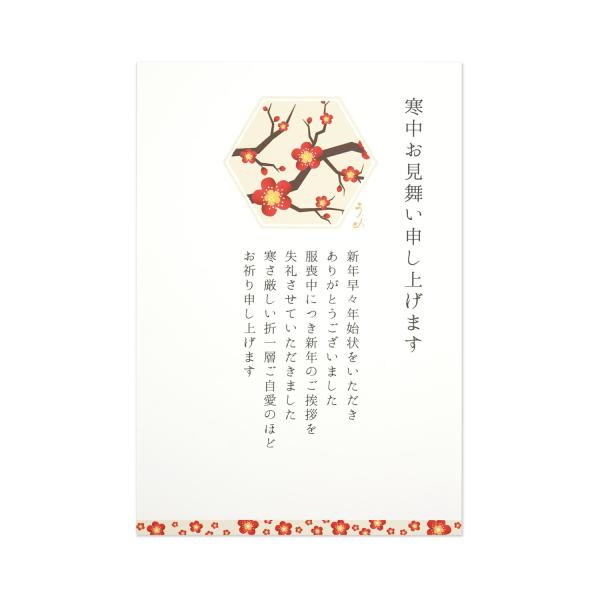 寒中お見舞い申し上げます
うめ
新年早々年始状をいただき
ありがとうございました
服喪中につき新年のご挨拶を
失礼させていただきました
寒さ厳しい折一層ご自愛のほど
お祈り申し上げます